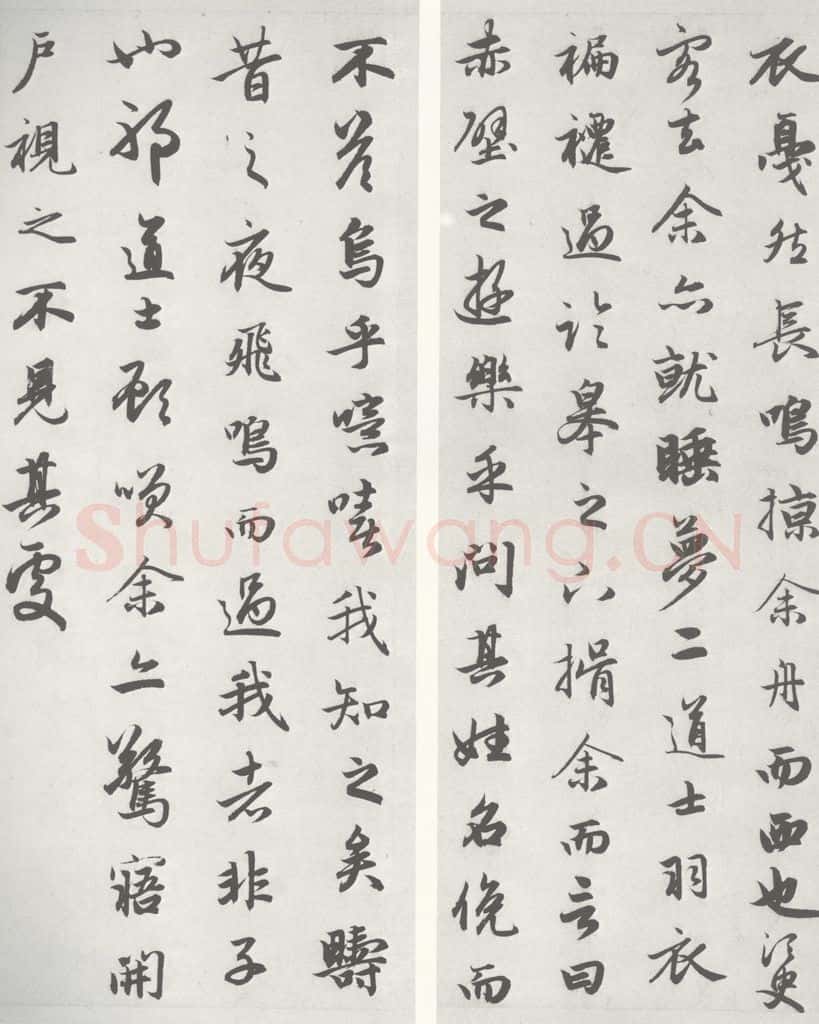 衣戛然長鳴掠余舟而西也須臾
客去余亦就睡夢二道士羽衣
褊褼過臨皋之下揖余而言曰
赤壁之遊樂乎問其姓名俛而
不答烏乎噫嘻我知之矣疇
昔之夜飛鳴而過我者非子
也耶道士顧笑余亦驚寤開
戶視之不見其處
Shufawang.CN